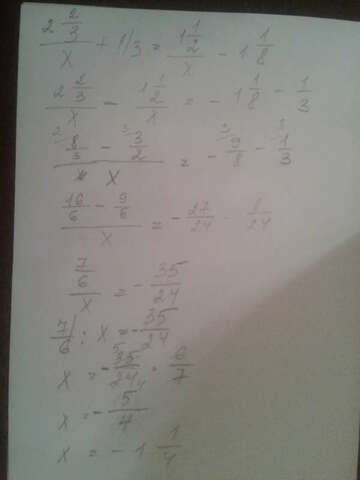 2 2/3 / x + 1/3 = 1 1/2 / x - 1 1/8
2 2/3 / x - 1 1/2 / x = - 1 1/8 - 1/3
8/3 - 3/2 / x = - 9/8 - 1/3
16/6 - 9/6 / x = - 27/24 - 8/24
7/6 / x = - 35/24
7/6 : x = - 35/24
x = - 35/24 · 6/7
x = - 5/4
x = - 1 1/4